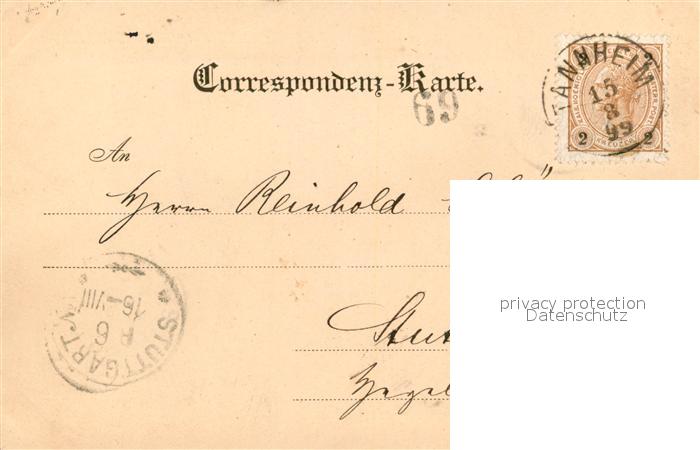 Correspondenz-Karte.
TANNHEIM
15
8
99
2 2
KREUZER
69
An
Herrn Reinhold
STUTTGART
16-VIII
6
Stut
Hegel
privacy protection
Datenschutz